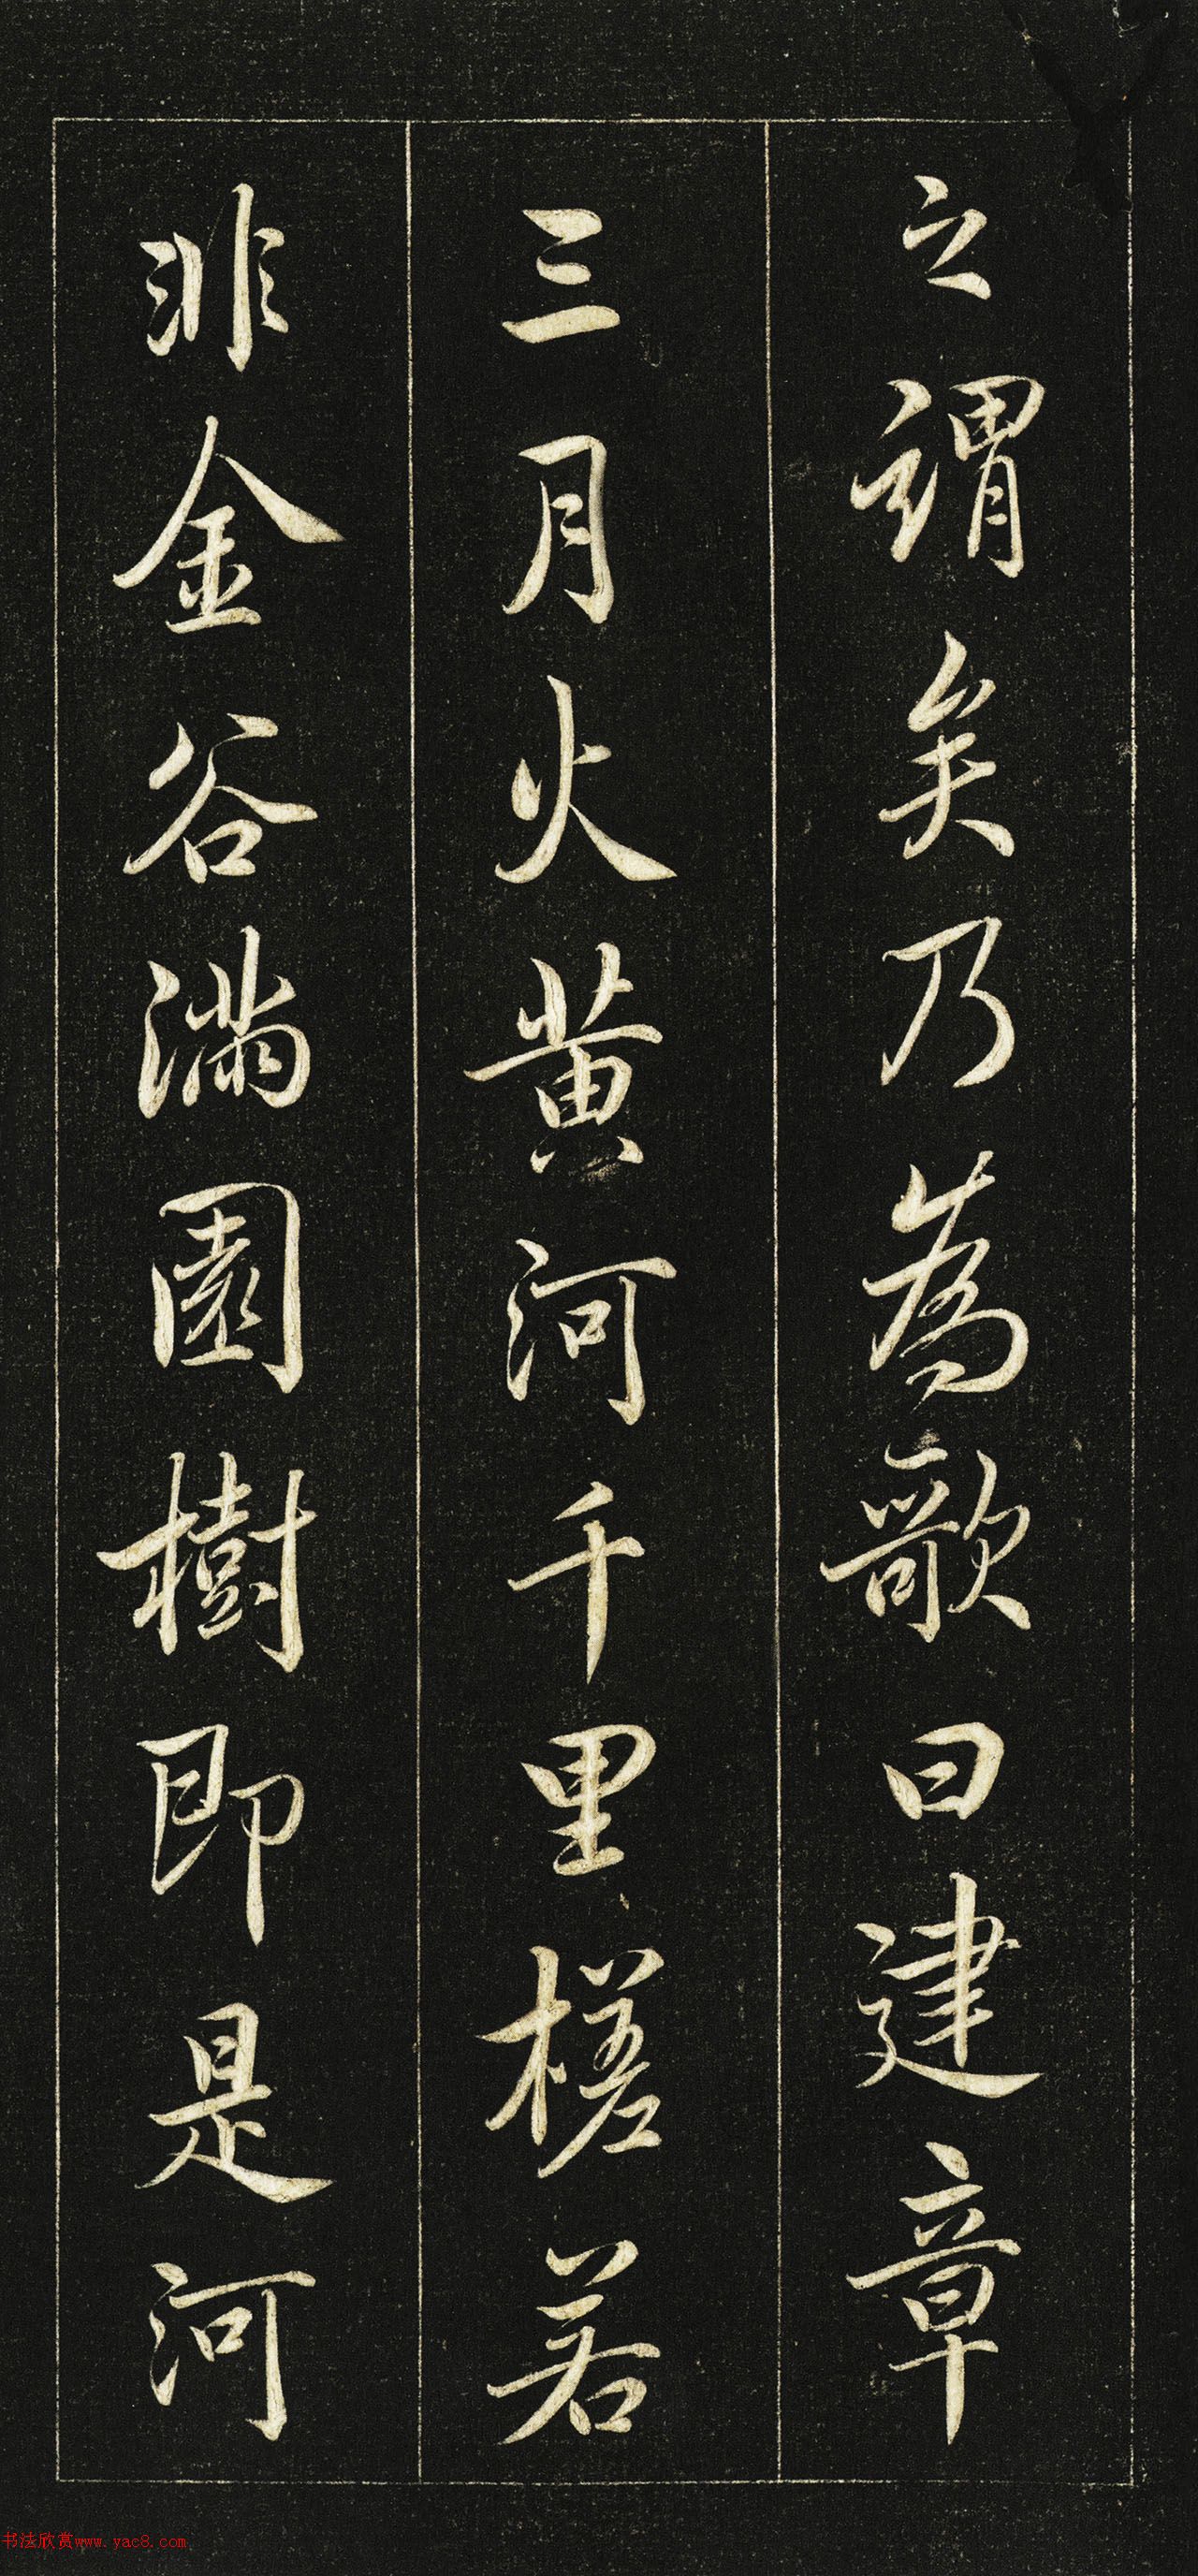 之謂矣乃為歌曰建章
三月火黄河千里槎若
非金谷滿園樹即是河
书法欣赏www.yac8.com